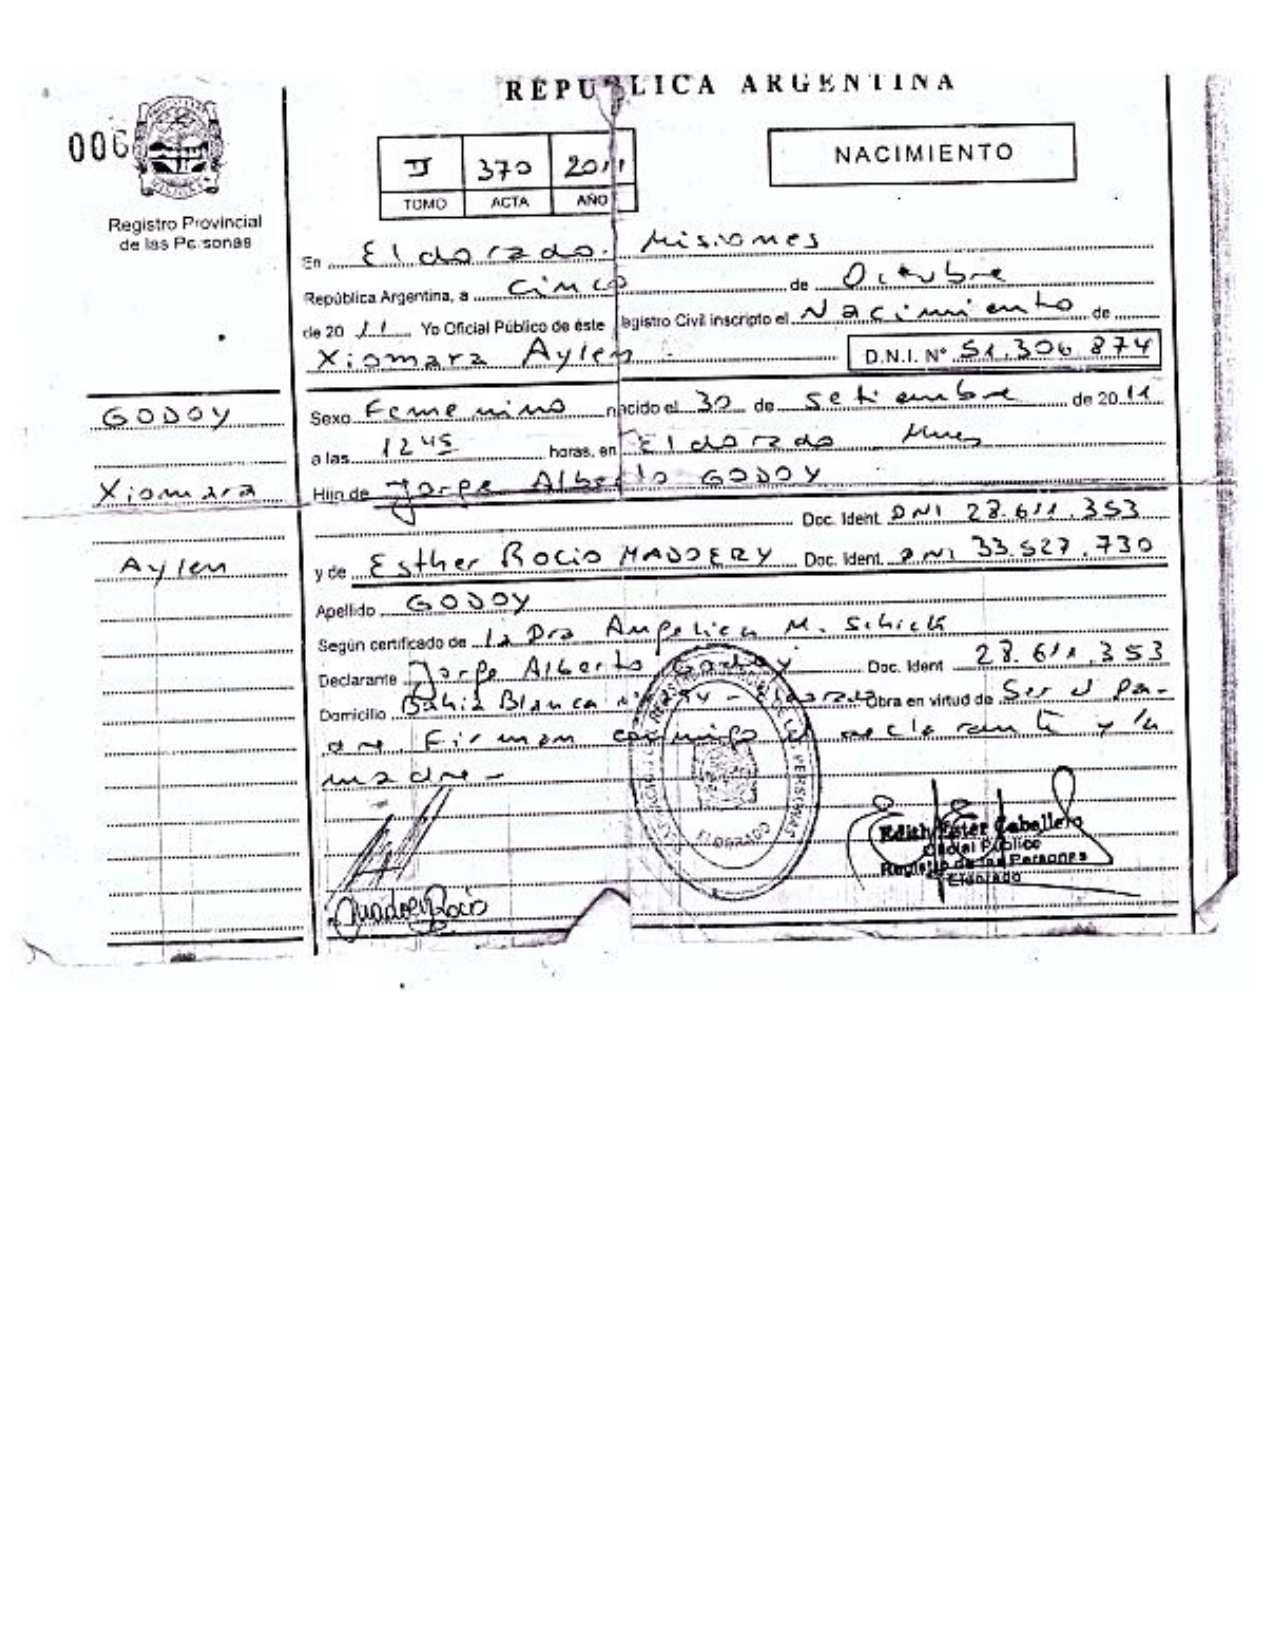 REPUBLICA ARGENTINA
006
II 370 2011
TOMO ACTA AÑO
NACIMIENTO
Registro Provincial
de las Personas
En Eldorado. Misiones
República Argentina, a Cinco de Octubre
de 2011 Yo Oficial Público de éste Registro Civil inscripto el Nacimiento de
Xiomara Aylen D.N.I. Nº 51.306.874
GODOY
Xiomara
Aylen
Sexo Femenino nacido el 30 de setiembre de 2011
a las 1245 horas, en Eldorado Mnes
Hijo de Jorge Alberto GODOY
Doc. Ident. DNI 28.611.353
y de Esther Rocio MADDERY Doc. Ident. DNI 33.527.730
Apellido GODOY
Según certificado de la Dra Angelica M. Schick
Declarante Jorge Alberto Godoy Doc. Ident 28.611.353
Domicilio Bahia Blanca Obra en virtud de Ser el Pa-
dre Firman conmigo el declarante y la
madre-
ELDORADO
Edith Ester Caballero
Oficial Público
Registro de las Personas
Eldorado
Rocio